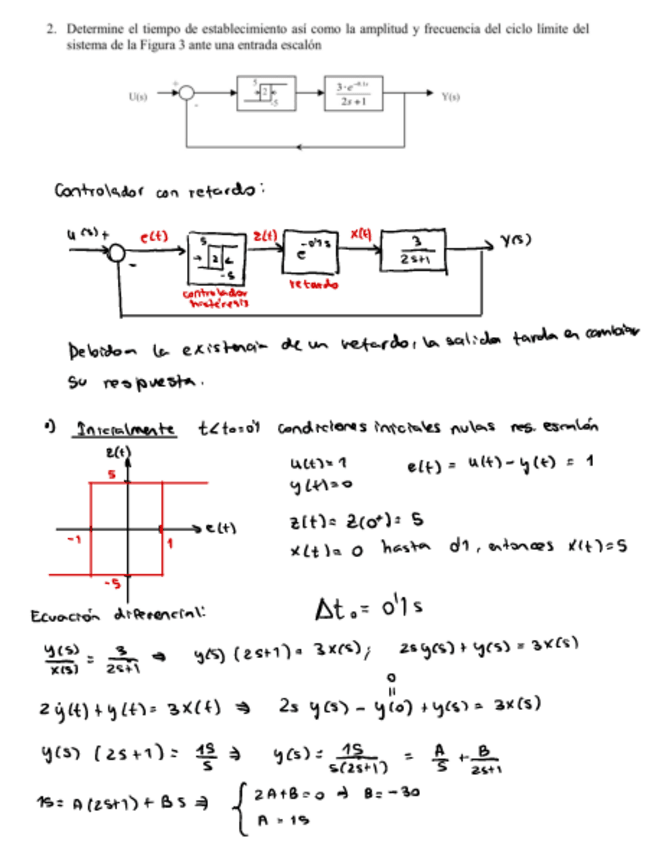 2. Determine el tiempo de establecimiento así como la amplitud y frecuencia del ciclo límite del
sistema de la Figura 3 ante una entrada escalón
U(s) + - 5 2 -5 3·e^-0.1s / 2s+1 Y(s)
Controlador con retardo:
u(s) + - e(t) 5 2 -5 z(t) e^-0'1s x(t) 3 / 2s+1 Y(s)
controlador histéresis
retardo
Debido a la existencia de un retardo, la salida tarda en cambiar
su respuesta.
•) Inicialmente t<to=0'1 condiciones iniciales nulas res. escalón
z(t)
5
u(t)=1 e(t) = u(t)-y(t) = 1
y(t)=0
e(t)
-1 1
z(t)= z(0⁺)= 5
x(t)= 0 hasta 0'1, entonces x(t)=5
-5
Δt₀ = 0'1 s
Ecuación diferencial:
y(s)/x(s) = 3/2s+1 ⇒ y(s) (2s+1) = 3x(s); 2s y(s) + y(s) = 3x(s)
0
=
2ẏ(t) + y(t) = 3x(t) ⇒ 2s y(s) - y(0) + y(s) = 3x(s)
y(s) (2s+1) = 15/s ⇒ y(s) = 15/s(2s+1) = A/s + B/2s+1
15 = A(2s+1) + Bs ⇒ { 2A+B=0 ⇒ B=-30
A = 15